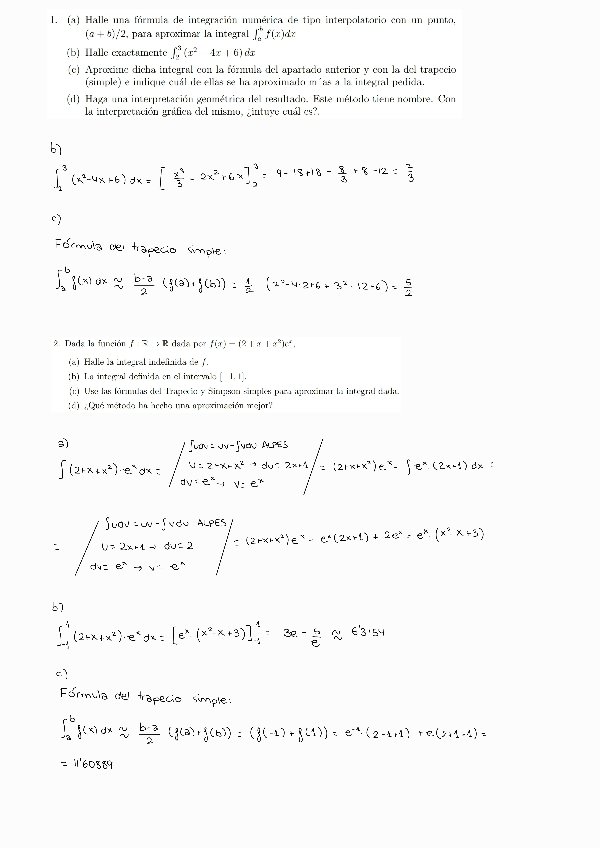 1. (a) Halle una fórmula de integración numérica de tipo interpolatorio con un punto,
(a + b)/2, para aproximar la integral ∫_a^b f(x)dx
(b) Halle exactamente ∫_2^3 (x² − 4x + 6) dx
(c) Aproxime dicha integral con la fórmula del apartado anterior y con la del trapecio
(simple) e indique cuál de ellas se ha aproximado m´as a la integral pedida.
(d) Haga una interpretación geométrica del resultado. Este método tiene nombre. Con
la interpretación gráfica del mismo, ¿intuye cuál es?.
b)
∫_2^3 (x²-4x+6) dx = [x³/3 - 2x² + 6x]_2^3 = 9 - 18 + 18 - 8/3 + 8 - 12 = 7/3
c)
Fórmula del trapecio simple:
∫_a^b f(x) dx ≈ (b-a)/2 (f(a)+f(b)) = 1/2 (2²-4·2+6+3²-12+6) = 5/2
2. Dada la función f : ℝ → ℝ dada por f(x) = (2 + x + x²)eˣ,
(a) Halle la integral indefinida de f.
(b) La integral definida en el intervalo [−1, 1].
(c) Use las fórmulas del Trapecio y Simpson simples para aproximar la integral dada.
(d) ¿Qué método ha hecho una aproximación mejor?
a)
∫udv = uv-∫vdu ALPES
∫(2+x+x²)·eˣ dx = / u=2+x+x² → du=2x+1 / = (2+x+x²)eˣ - ∫eˣ·(2x+1) dx =
dv=eˣ → v=eˣ
∫udv = uv-∫vdu ALPES
= / u=2x+1 → du=2 / = (2+x+x²)eˣ - eˣ(2x+1) + 2eˣ = eˣ·(x²-x+3)
dv=eˣ → v=eˣ
b)
∫_-1^1 (2+x+x²)·eˣ dx = [eˣ·(x²-x+3)]_-1^1 = 3e - 5/e ≈ 6'3154
c)
Fórmula del trapecio simple:
∫_a^b f(x) dx ≈ (b-a)/2 (f(a)+f(b)) = (f(-1)+f(1)) = e⁻¹·(2-1+1) + e(2+1+1) =
= 11'60889